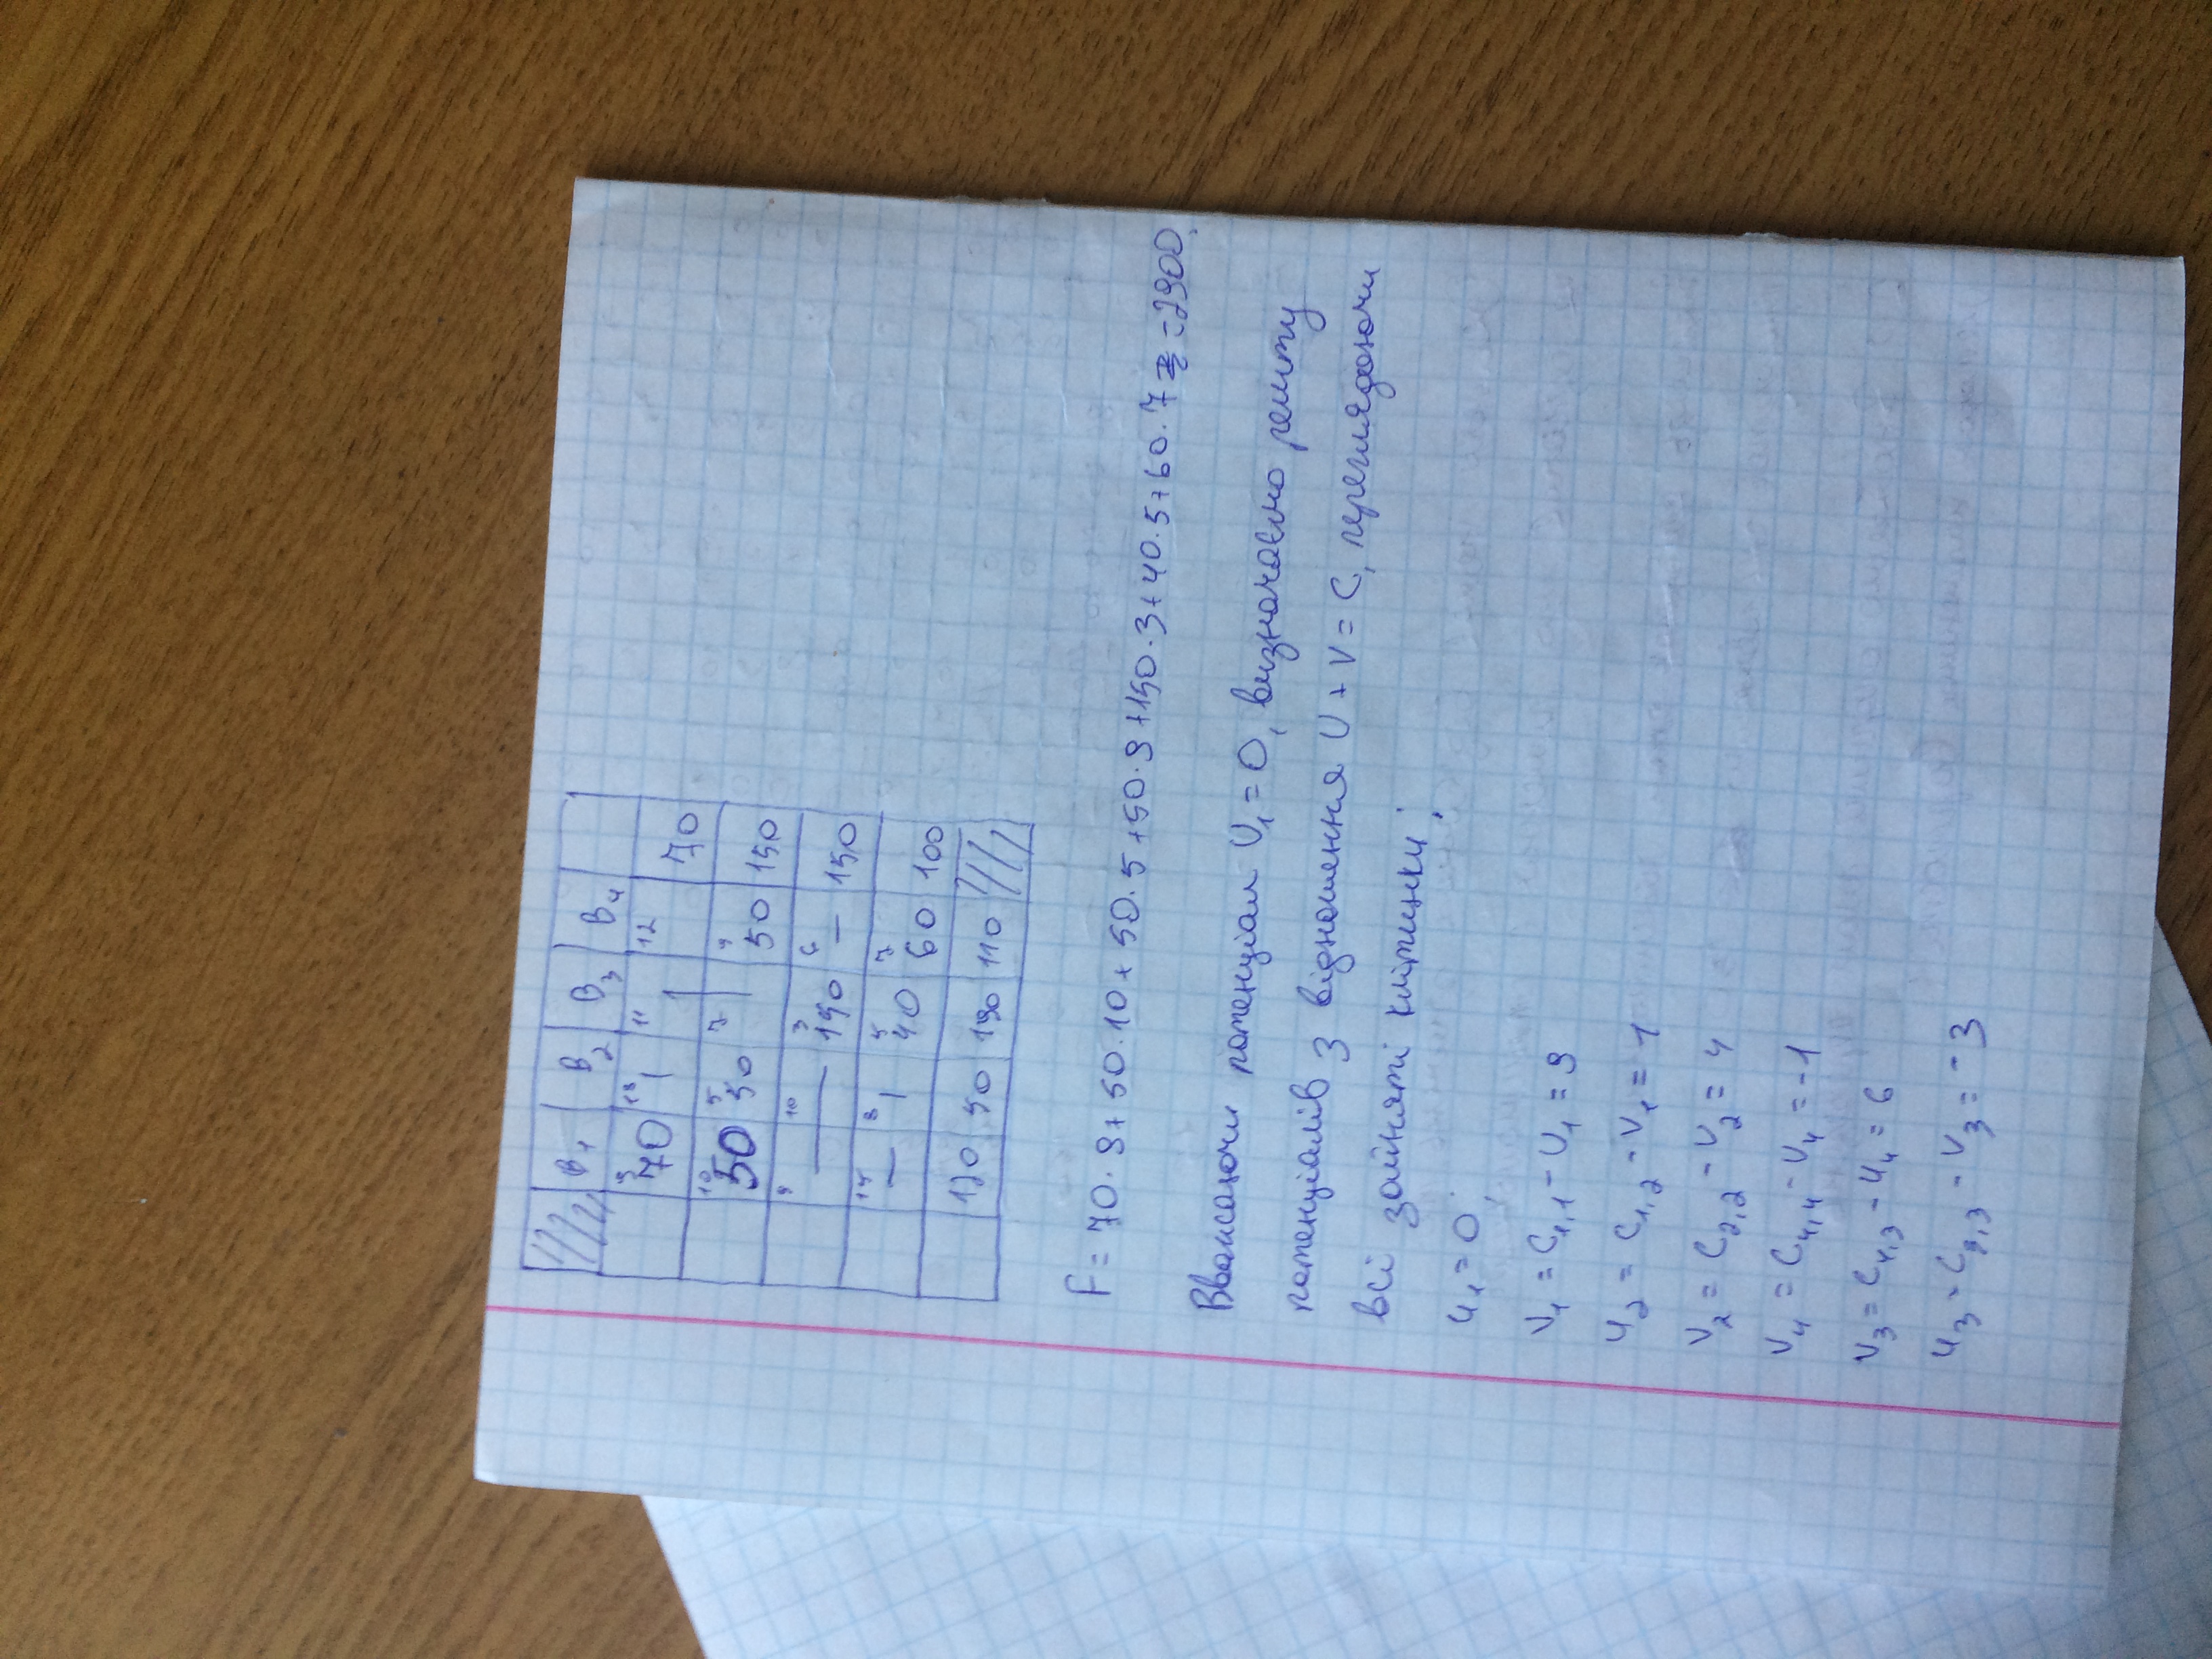 B₁ B₂ B₃ B₄
9 70 18 | 11 | 12 70
10 50 5 50 7 | 9 50 150
9 — 10 — 3 150 6 — 150
14 — 8 | 5 40 7 60 100
120 50 190 110
F = 70·9+50·10+50·5+50·9+150·3+40·5+60·7 =2900.
Вважаючи потенціал U₁=0, визначаємо решту
потенціалів з відношення U+V=C, переглядаючи
всі зайняті клітинки:
u₁=0;
V₁ = C₁,₁ - U₁ = 9
u₂ = C₁,₂ - V₁ = 1
V₂ = C₂,₂ - U₂ = 4
V₄ = C₄,₄ - U₄ = -1
V₃ = C₄,₃ - u₄ = 6
u₃ = C₃,₃ - V₃ = -3